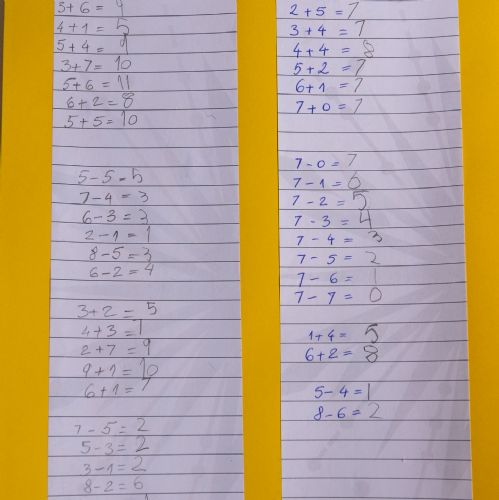 3+6=9
4+1=5
5+4=9
3+7=10
5+6=11
6+2=8
5+5=10
5-5=5
7-4=3
6-3=3
2-1=1
8-5=3
6-2=4
3+2=5
4+3=7
2+7=9
9+1=10
6+1=7
7-5=2
5-3=2
3-1=2
8-2=6
2+5=7
3+4=7
4+4=8
5+2=7
6+1=7
7+0=7
7-0=7
7-1=6
7-2=5
7-3=4
7-4=3
7-5=2
7-6=1
7-7=0
1+4=5
6+2=8
5-4=1
8-6=2